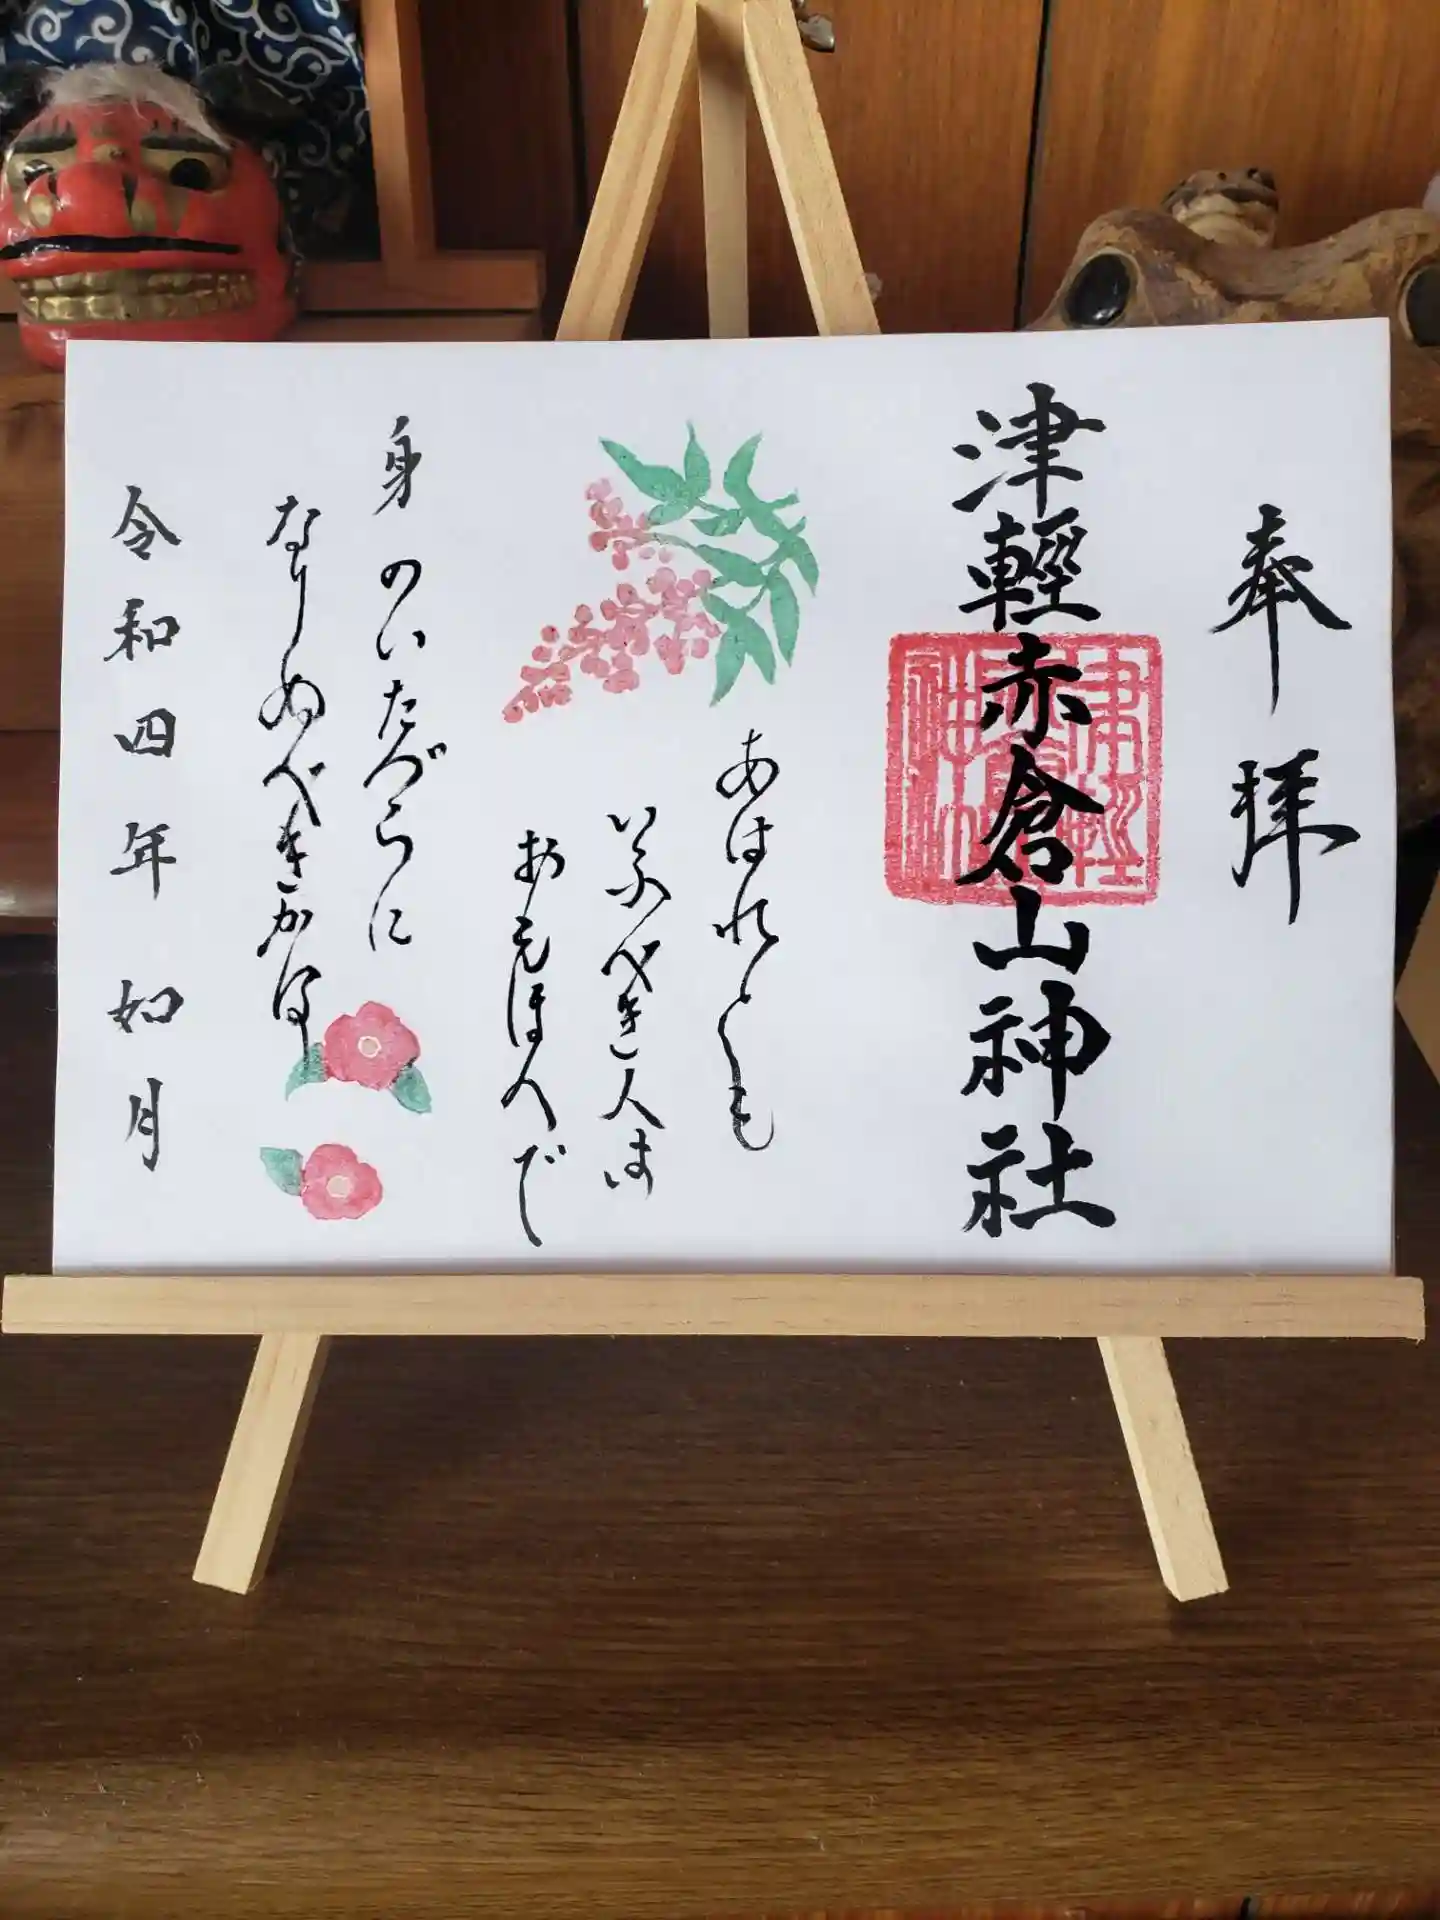 奉拝
津輕赤倉山神社
あはれとも
いふべき人は
おもほへで
身のいたづらに
なりぬべきかな
令和四年 如月